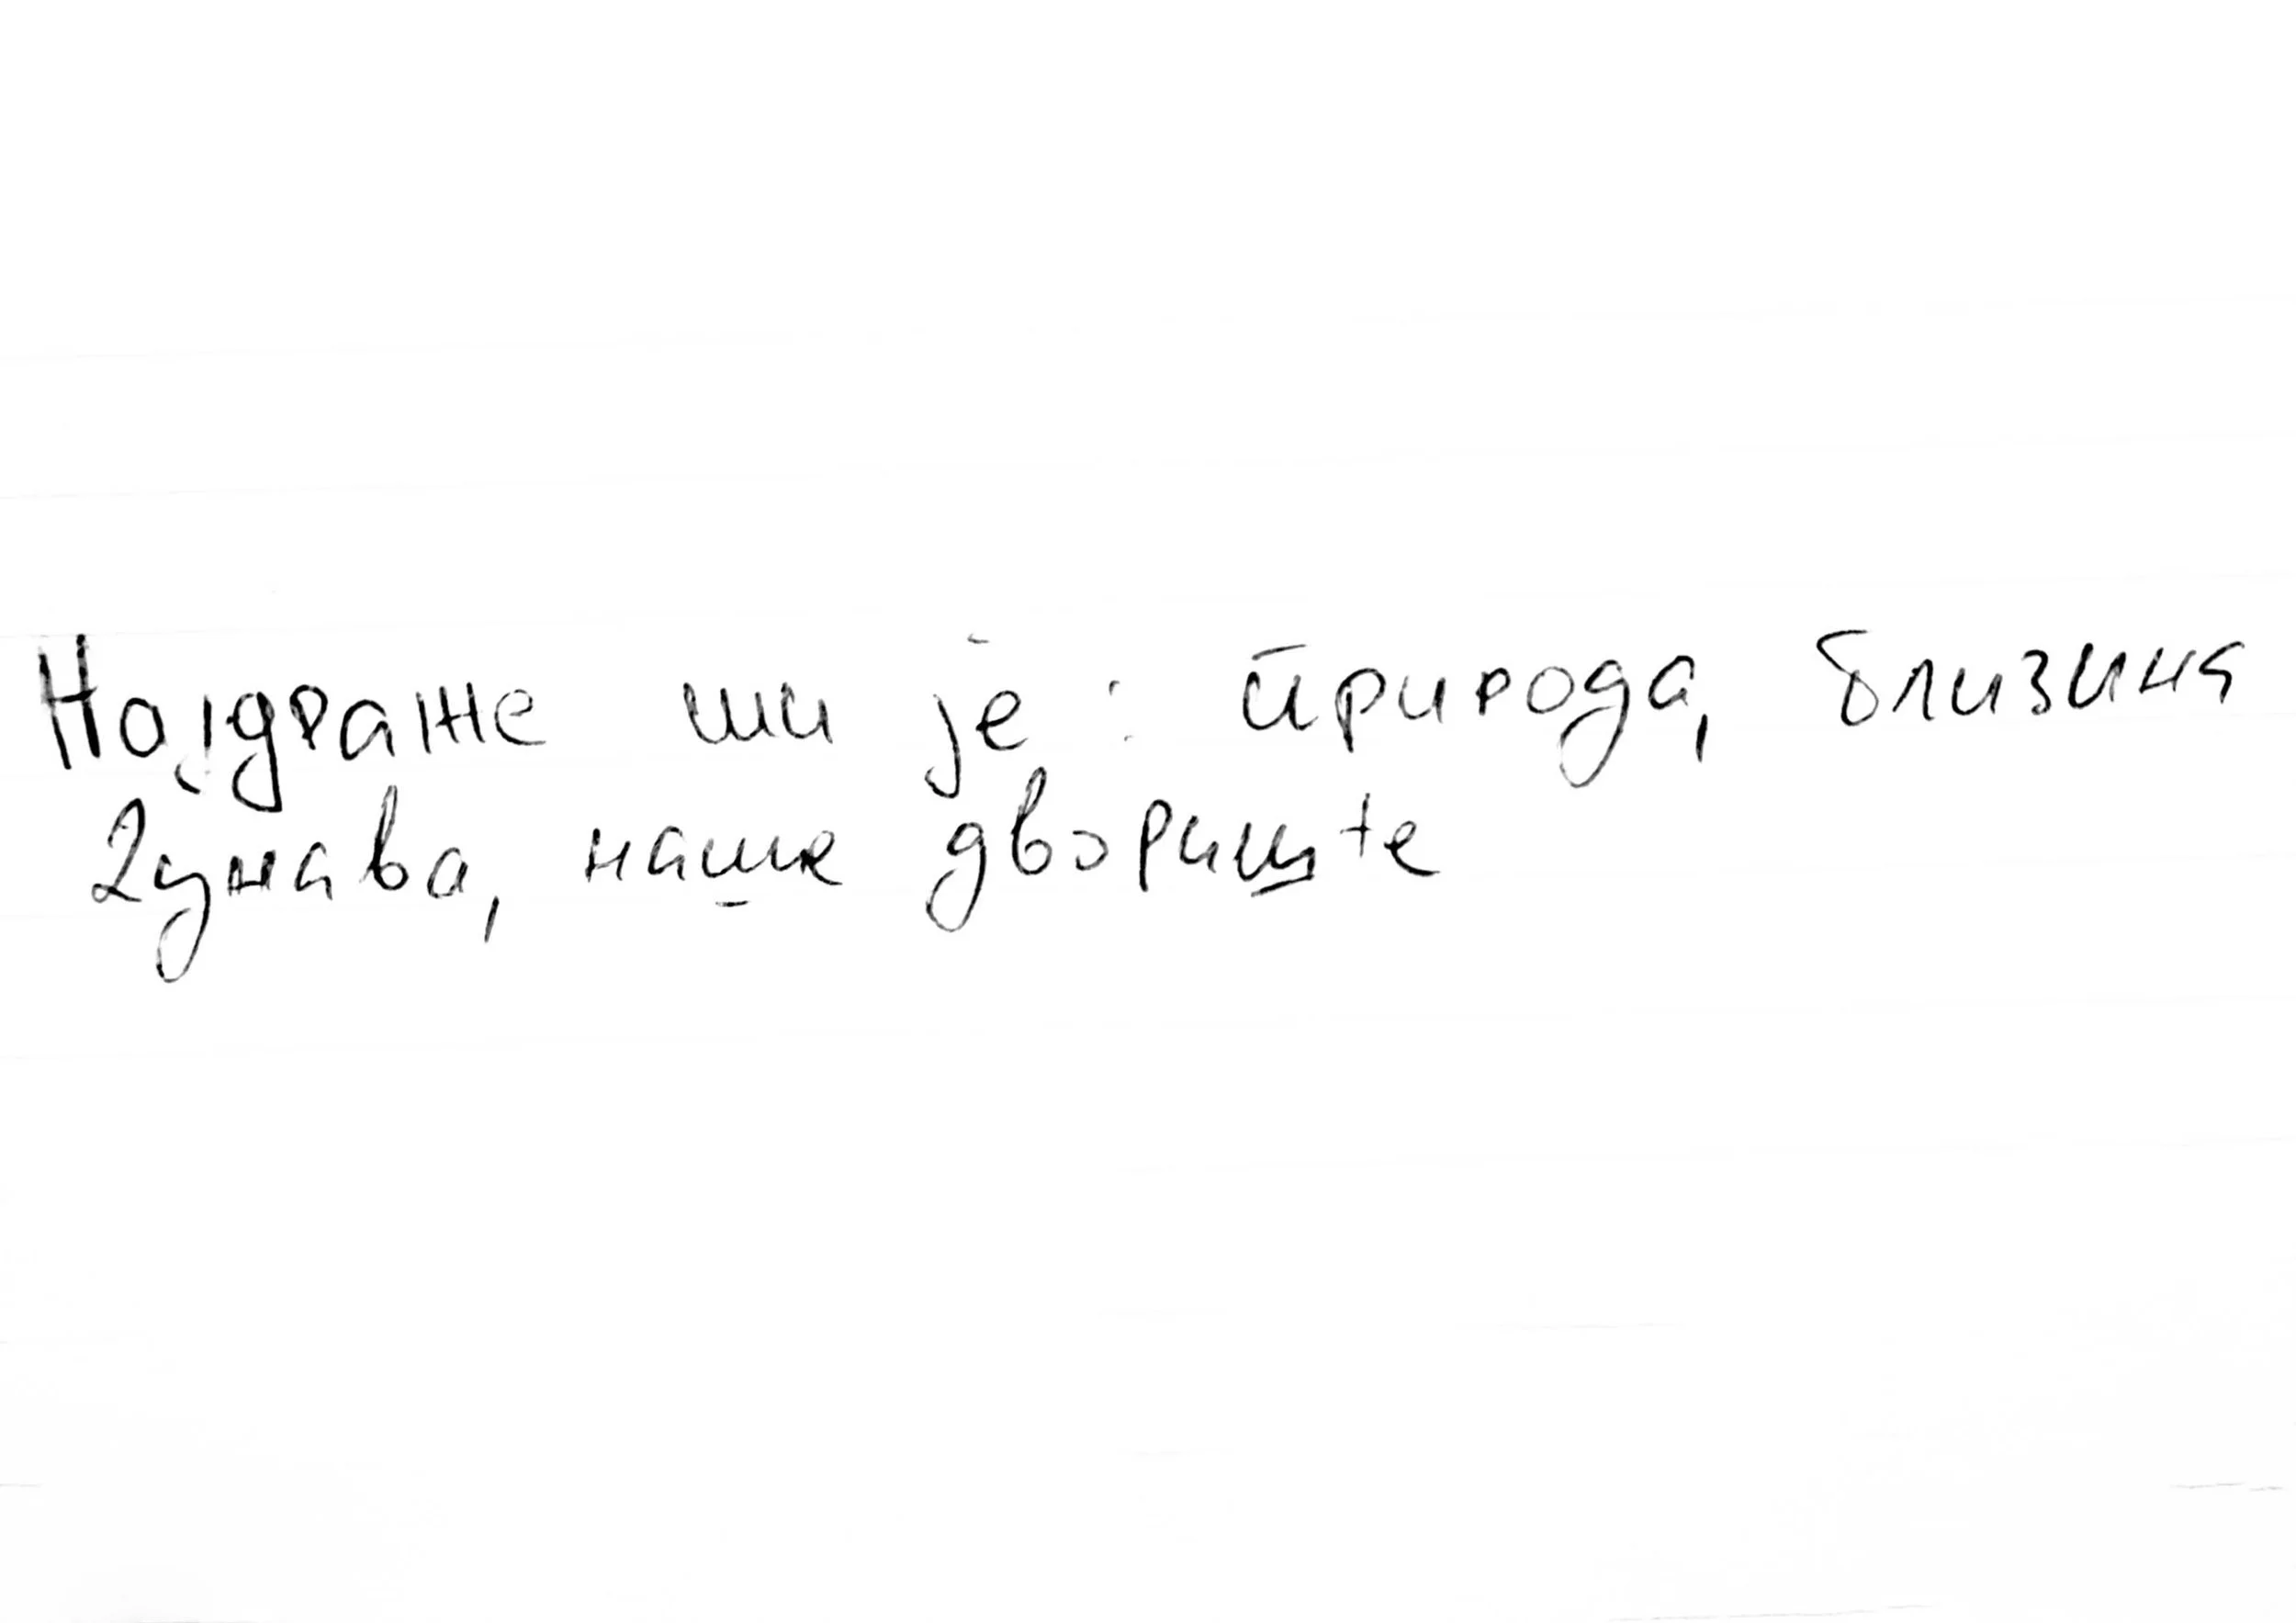 Најдраже ми је: природа, близина
Дунава, наше двориште